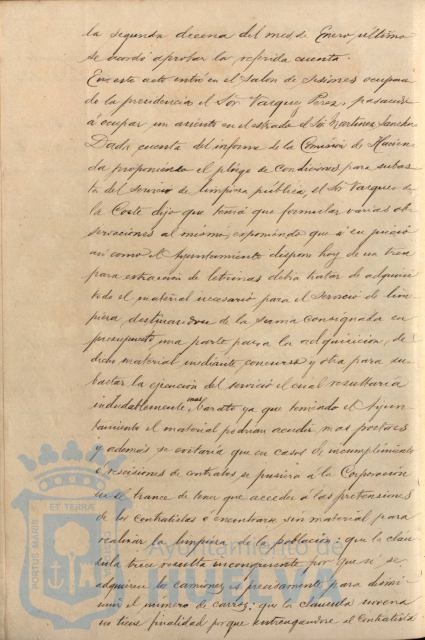 la segunda decena del mes de Enero último
se acordó aprobar la referida cuenta.
En este acto entró en el Salon de Sesiones ocupando
de la presidencia el Sor Vazquez Perez, pasando
á ocupar un asiento en el estrado el Sor Martinez Sanchez
Dada cuenta del informe de la Comisión de Hacien-
da proponiendo el pliego de Condiciones para subas-
ta del servicio de limpieza pública, el Sor Vazquez de
la Corte dijo que tenia que formular varias ob-
servaciones al mismo, exponiendo que á su juicio
asi como el Ayuntamiento dispone hoy de un tren
para extracción de letrinas debia tratar de adquirir
todo el material necesario para el servicio de lim-
pieza, destinandose de la suma consignada en
presupuesto una parte para la adquisicion, de
dicho material mediante concurso y otra para su-
bastar la ejecución del servicio el cual resultaria
indudablemente mas barato ya que teniendo el Ayun-
tamiento el material podrian acudir mas postores
y además se evitaria que en casos de incumplimiento
ó rescisiones de contratos se pusiera á la Corporación
en el trance de tener que acceder á las pretensiones
de los contratistas ó encontrarse sin material para
realizar la limpieza de la población: que la clau-
sula trece resulta incongruente por que si se
adquieren los camiones es precisamente para dismi-
nuir el número de carros: que la clausula novena
no tiene finalidad porque entregandose el Contratista
Ayuntamiento de
HUELVA
PORTUS MARIS ET TERRAE